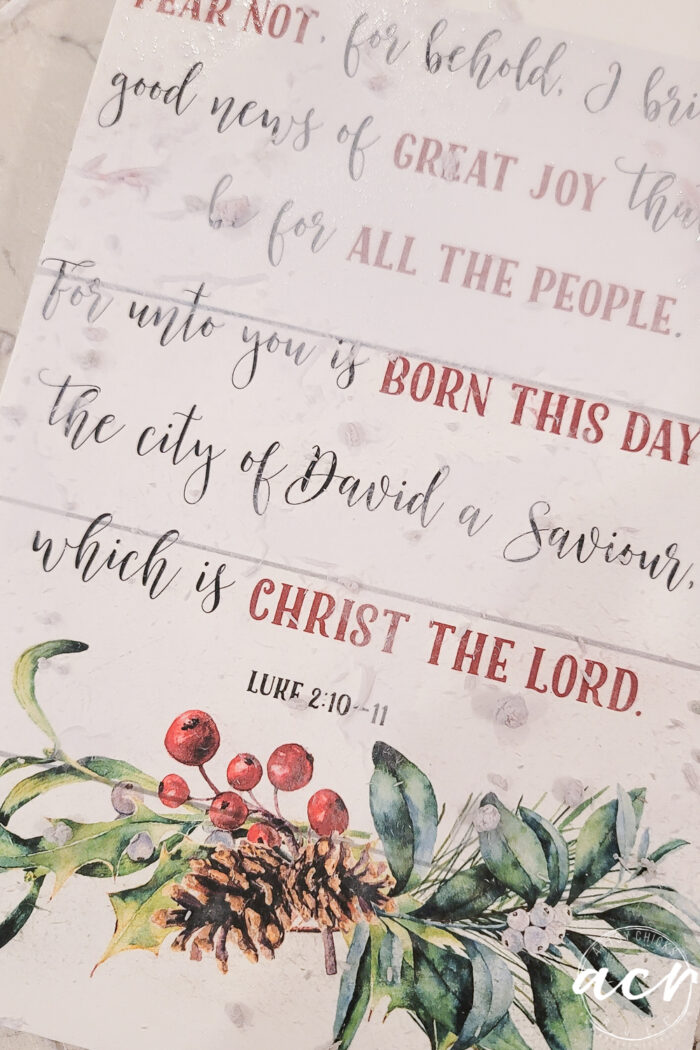 FEAR NOT, for behold, I bri
good news of GREAT JOY tha
be for ALL THE PEOPLE.
For unto you is BORN THIS DAY
the city of David a Saviour,
which is CHRIST THE LORD.
LUKE 2:10-11
acr